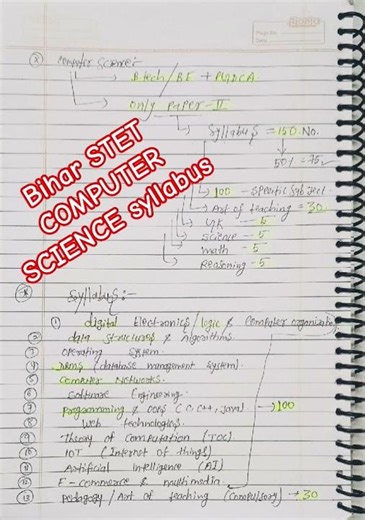 Computer Science:-
Btech/BE + PGDCA
only paper-II
Syllabus = 150 No.
50% = 75
100 - Specific Subject
Art of teaching = 30
GK - 5
Science - 5
math - 5
Reasoning - 5
Bihar STET
COMPUTER
SCIENCE syllabus
Syllabus:-
① digital Electronics/logic & Computer organization
② data structures & Algorithms.
③ operating system.
④ DBMS (database management system).
⑤ Computer Networks.
⑥ Software Engineering.
⑦ Programming & OOPS (C, C++, Java) → 100
⑧ Web technologies.
⑨ Theory of Computation (TOC)
⑩ IOT (Internet of things)
Artificial Intelligence (AI)
⑫ E-commerce & multimedia.
⑬ Pedagogy / Art of teaching (Compulsory) → 30